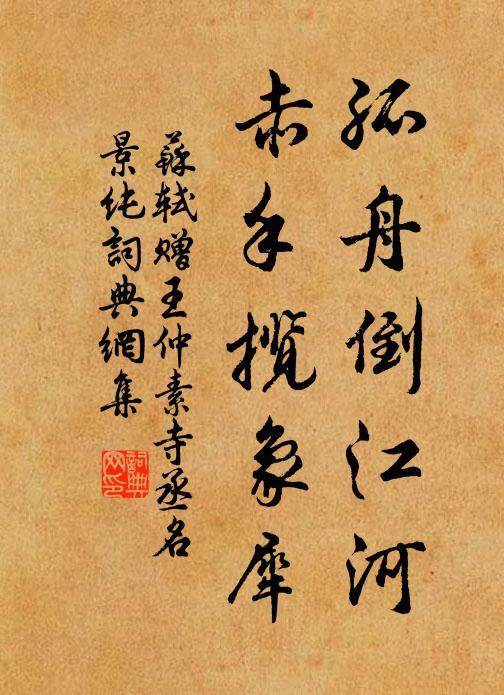 孤舟倒江河
赤手揽象犀
蘇軾贈王仲素寺丞名
景纯詞典網集
詞典网印